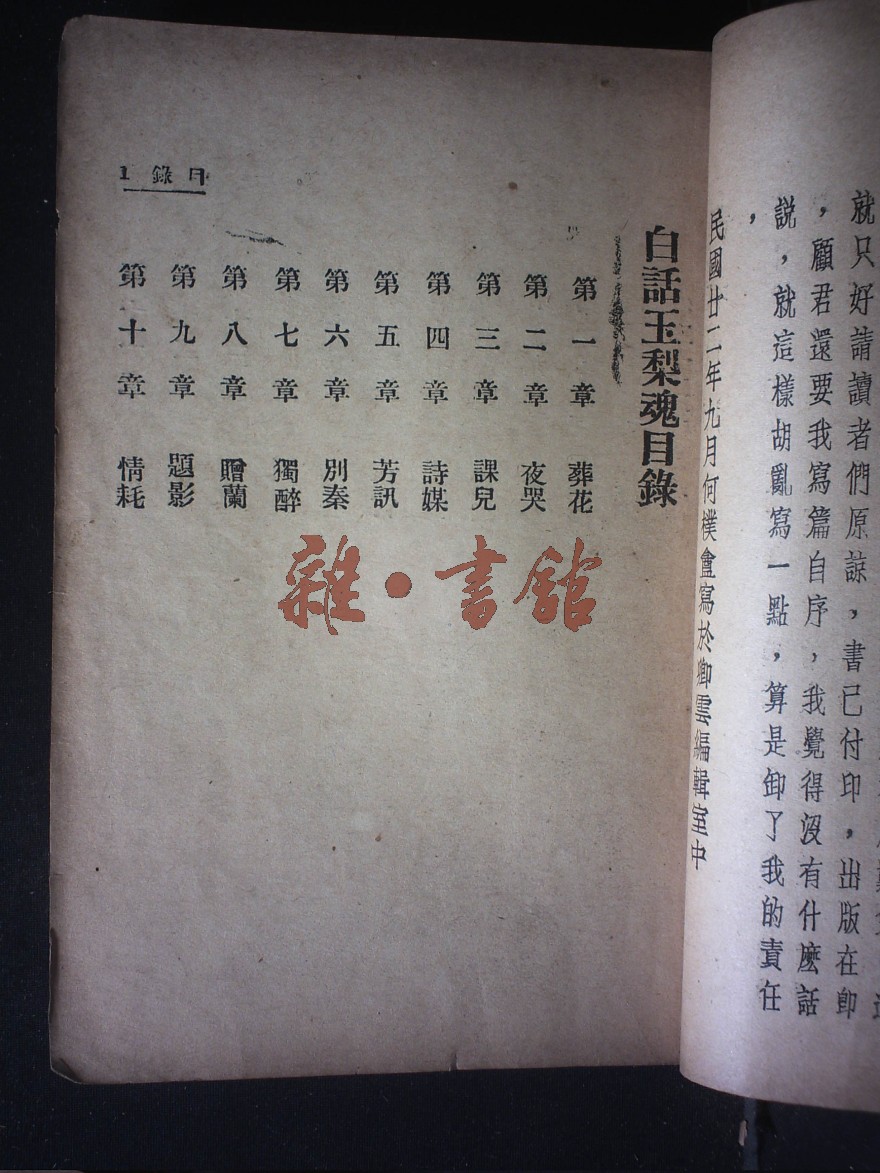 就只好請讀者們原諒，書已付印，出版在卽
，顧君還要我寫篇自序，我覺得沒有什麽話
説，就這樣胡亂寫一點，算是卸了我的責任
，
民國廿二年九月何樸盦寫於卿雲編輯室中
白話玉梨魂目錄
第一章 葬花
第二章 夜哭
第三章 課兒
第四章 詩媒
第五章 芳訊
第六章 別秦
第七章 獨醉
第八章 贈蘭
第九章 題影
第十章 情耗
目錄 1
雜·書館